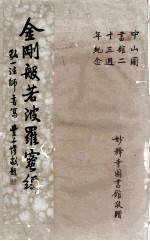 中山圖
書館二
十三週
年紀念
金剛般若波羅蜜經
弘一法師書寫 豐子愷敬題
妙釋寺圖書館敬贈